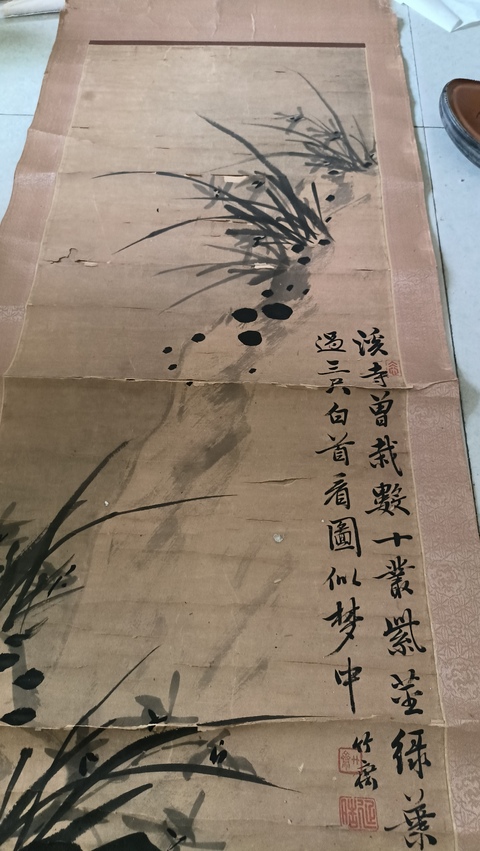 溪寺曾栽數十叢紫莖綠葉
過三尺白首看圖似梦中
竹齋